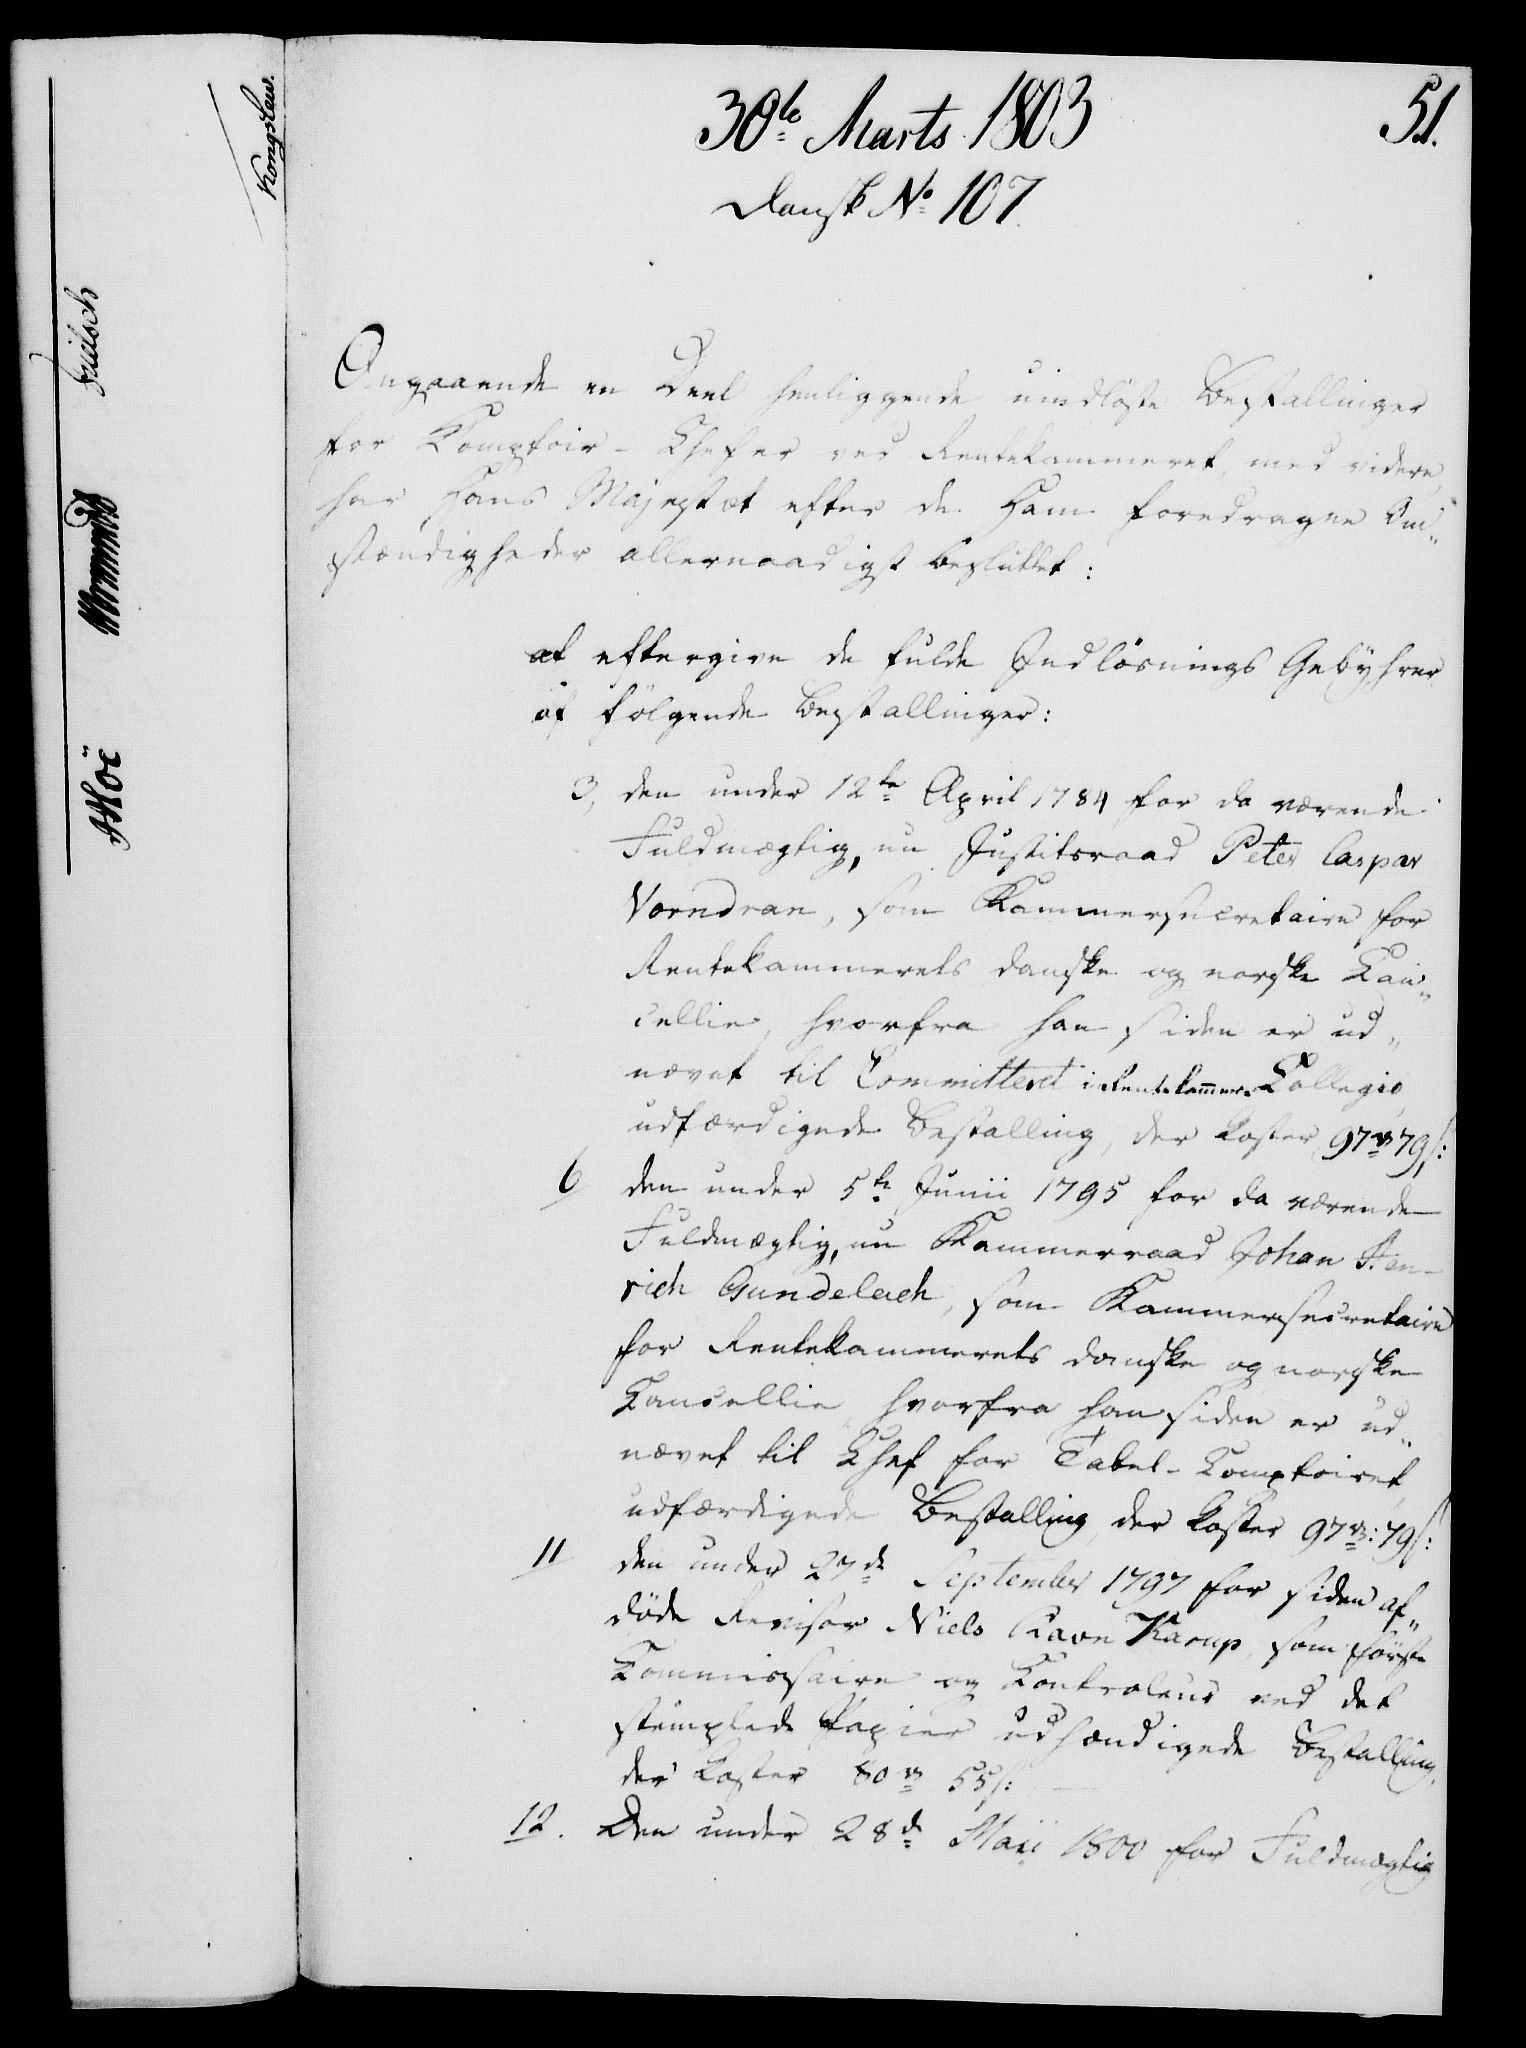 51.
30te Marts 1803
Dansk No 107.
Angaaende en Deel henliggende uindløste Bestallinger
for Comptoir-Chefer ved Rentekammeret, med videre,
har Hans Majestæt efter de Ham foredragne Om„
stændigheder allernaadigst besluttet:
at eftergive de fulde Indløsnings Gebyhrer
af følgende Bestallinger:
3, den under 12te April 1784 for da værende
Fuldmægtig, nu Justitsraad Peter Caspar
Vorndran, som Kammersecretaire for
Rentekammerets danske og norske Can„
cellie, hvorfra han siden er ud„
nævnt til Committeret i Rentekammer-Collegio,
udfærdigede Bestalling, der koster 97 rd 79 s:
6 den under 5te Junii 1795 for da værende
Fuldmægtig, nu Kammerraad Johan Hen-
rich Gundelach, som Kammersecretaire
for Rentekammerets danske og norske
Cancellie, hvorfra han siden er ud„
nævnt til Chef for Tabel-Comptoiret,
udfærdigede Bestalling, der koster 97 rd: 79 s:
11 den under 27de September 1797 for siden af„
døde Revisor Niels Ravn Karup, som første
Kommissaire og Kontroleur ved det
stemplede Papier udfærdigede Bestalling,
der koster 80 rd 55 s:
12. Den under 28de Maii 1800 for Fuldmægtig
Kongslew.
Fritsch
Wormskiold
Møi